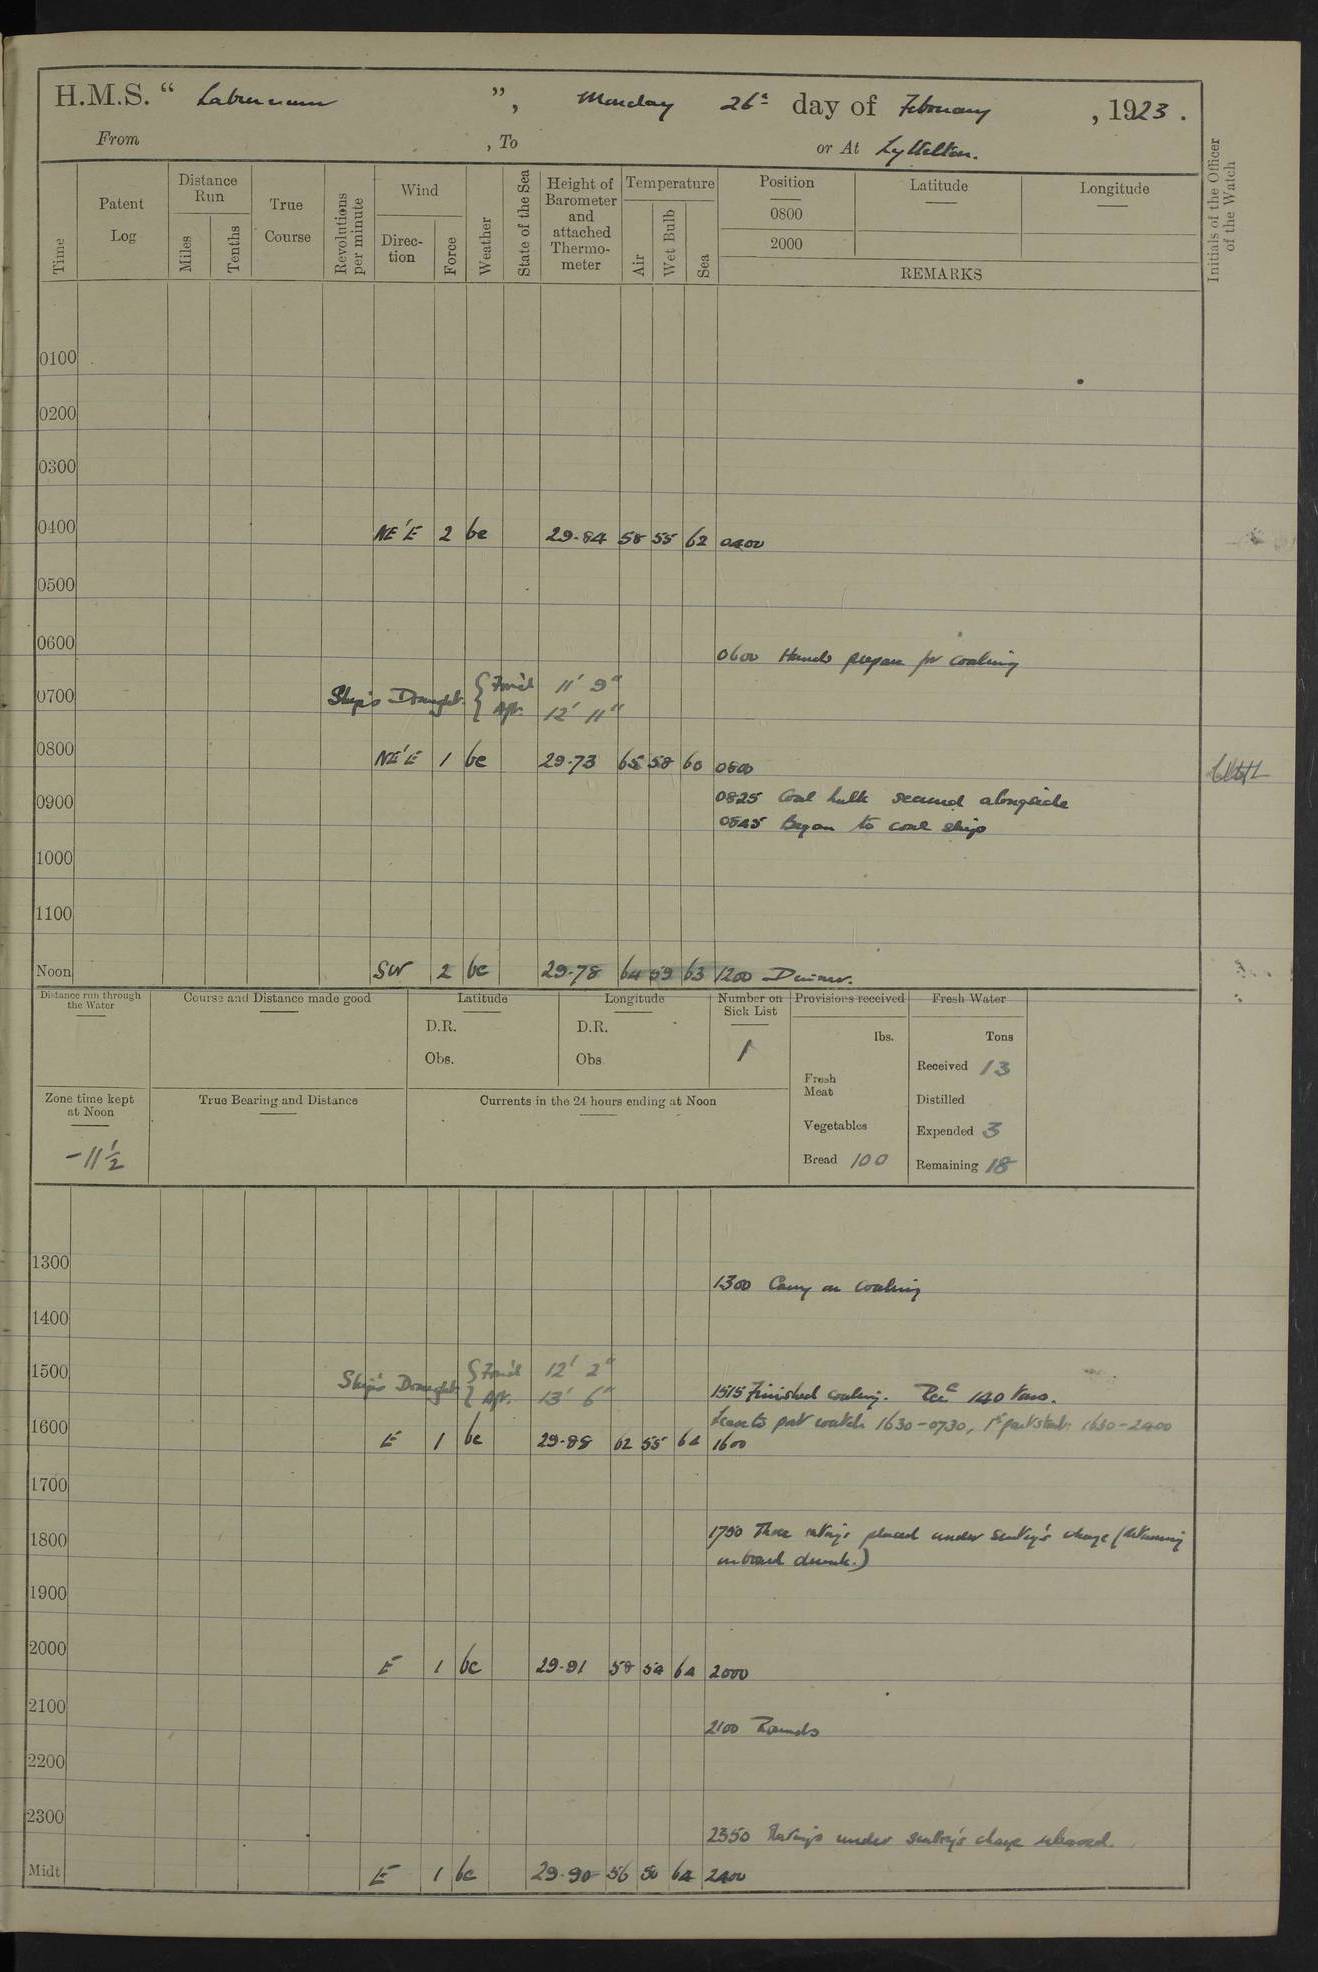 H.M.S. “ Laburnum ”, Monday 26th day of February , 1923 .
From , To or At Lyttelton.
Time
Patent Log
Distance Run
Miles
Tenths
True Course
Revolutions per minute
Wind
Direc-tion
Force
Weather
State of the Sea
Height of Barometer and attached Thermo-meter
Temperature
Air
Wet Bulb
Sea
Position
0800
2000
Latitude
Longitude
REMARKS
Initials of the Officer of the Watch
0100
0200
0300
0400 NE'E 2 bc 29.84 58 55 62 0400
0500
0600
0600 Hands prepare for coaling
0700 Ship's Draught { For'd 11' 9"
{ Aft. 12' 11"
0800 NE'E 1 bc 29.73 65 58 60 0800
0825 Coal hulk secured alongside
0900
0845 Began to coal ship
1000
1100
Noon SW 2 bc 29.78 64 59 63 1200 Dinner.
Distance run through the Water
Course and Distance made good
Latitude
D.R.
Obs.
Longitude
D.R.
Obs
Number on Sick List
1
Provisions received
lbs.
Fresh Meat
Vegetables
Bread 100
Fresh Water
Tons
Received 13
Distilled
Expended 3
Remaining 18
Zone time kept at Noon
-11½
True Bearing and Distance
Currents in the 24 hours ending at Noon
1300
1300 Carry on coaling
1400
1500 Ship's Draught { For'd 12' 2"
{ Aft. 13' 6"
1515 Finished coaling. Recd 140 tons.
Leave to port watch 1630-0730, 1st part starbd 1630-2400
1600 E 1 bc 29.88 62 55 64 1600
1700
1800
1750 Three ratings placed under sentry's charge (returning
onboard drunk.)
1900
2000 E 1 bc 29.91 58 54 64 2000
2100
2100 Rounds
2200
2300
2350 Ratings under sentry's charge released.
Midt E 1 bc 29.90 56 50 64 2400